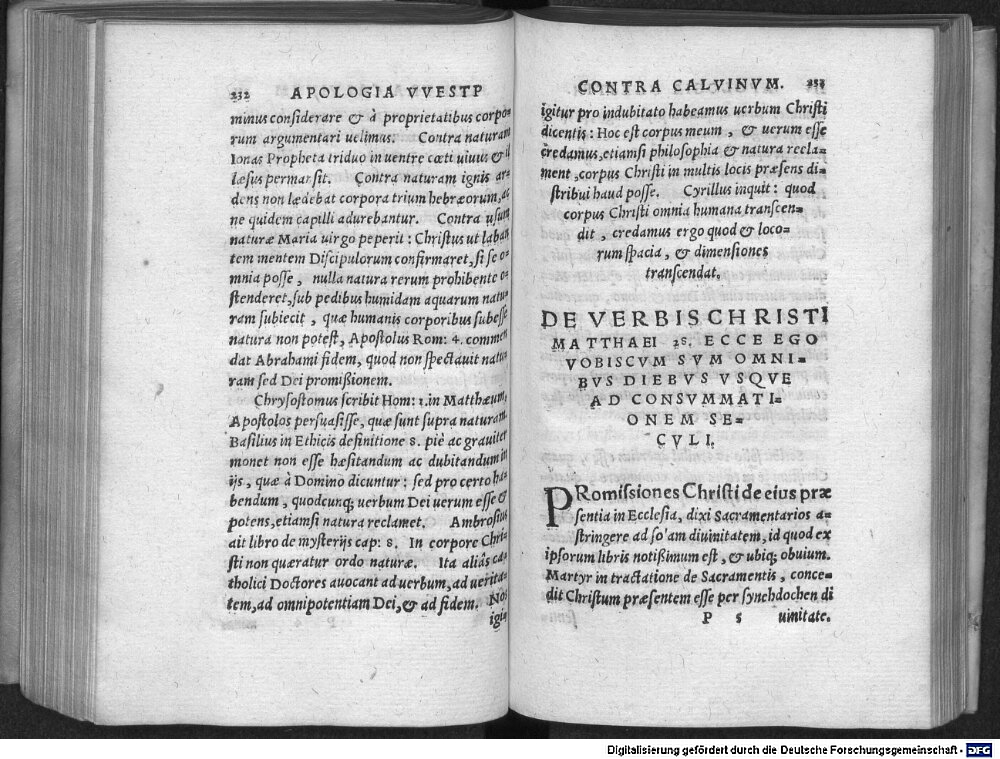 232 APOLOGIA VVESTP
minus considerare & à proprietatibus corpo-
rum argumentari uelimus. Contra naturam
Ionas Propheta triduo in uentre cœti uiuus & il
læsus permansit. Contra naturam ignis ar-
dens non lædebat corpora trium hebræorum, ac
ne quidem capilli adurebantur. Contra usum
naturæ Maria uirgo peperit: Christus ut laban
tem mentem Discipulorum confirmaret, si se o-
mnia posse, nulla natura rerum prohibente o-
stenderet, sub pedibus humidam aquarum natu-
ram subiecit, quæ humanis corporibus subesse
natura non potest, Apostolus Rom: 4. commen
dat Abrahami fidem, quod non spectauit natu-
ram sed Dei promißionem.
Chrysostomus scribit Hom: 1. in Matthæum,
Apostolos persuasisse, quæ sunt supra naturam.
Basilius in Ethicis definitione 8. piè ac grauiter
monet non esse hæsitandum ac dubitandum in
ijs, quæ à Domino dicuntur: sed pro certo ha-
bendum, quodcunq; uerbum Dei uerum esse &
potens, etiamsi natura reclamet. Ambrosius
ait libro de mysterijs cap: 8. In corpore Chri-
sti non quæratur ordo naturæ. Ita aliâs ca-
tholici Doctores auocant ad uerbum, ad uerita-
tem, ad omnipotentiam Dei, & ad fidem. Nos
igitur
CONTRA CALVINVM. 233
igitur pro indubitato habeamus uerbum Christi
dicentis: Hoc est corpus meum, & uerum esse
credamus, etiamsi philosophia & natura recla-
ment, corpus Christi in multis locis præsens di-
stribui haud posse. Cyrillus inquit: quod
corpus Christi omnia humana transcen-
dit, credamus ergo quod & loco-
rum spacia, & dimensiones
transcendat.
DE VERBIS CHRISTI
MATTHAEI 28. ECCE EGO
VOBISCVM SVM OMNI-
BVS DIEBVS VSQVE
AD CONSVMMATI-
ONEM SE-
CVLI.
PRomissiones Christi de eius præ
sentia in Ecclesia, dixi Sacramentarios a-
stringere ad solam diuinitatem, id quod ex
ipsorum libris notißimum est, & ubiq; obuium.
Martyr in tractatione de Sacramentis, conce-
dit Christum præsentem esse per synehdochen di
P 5 uinitate.
Digitalisierung gefördert durch die Deutsche Forschungsgemeinschaft - DFG